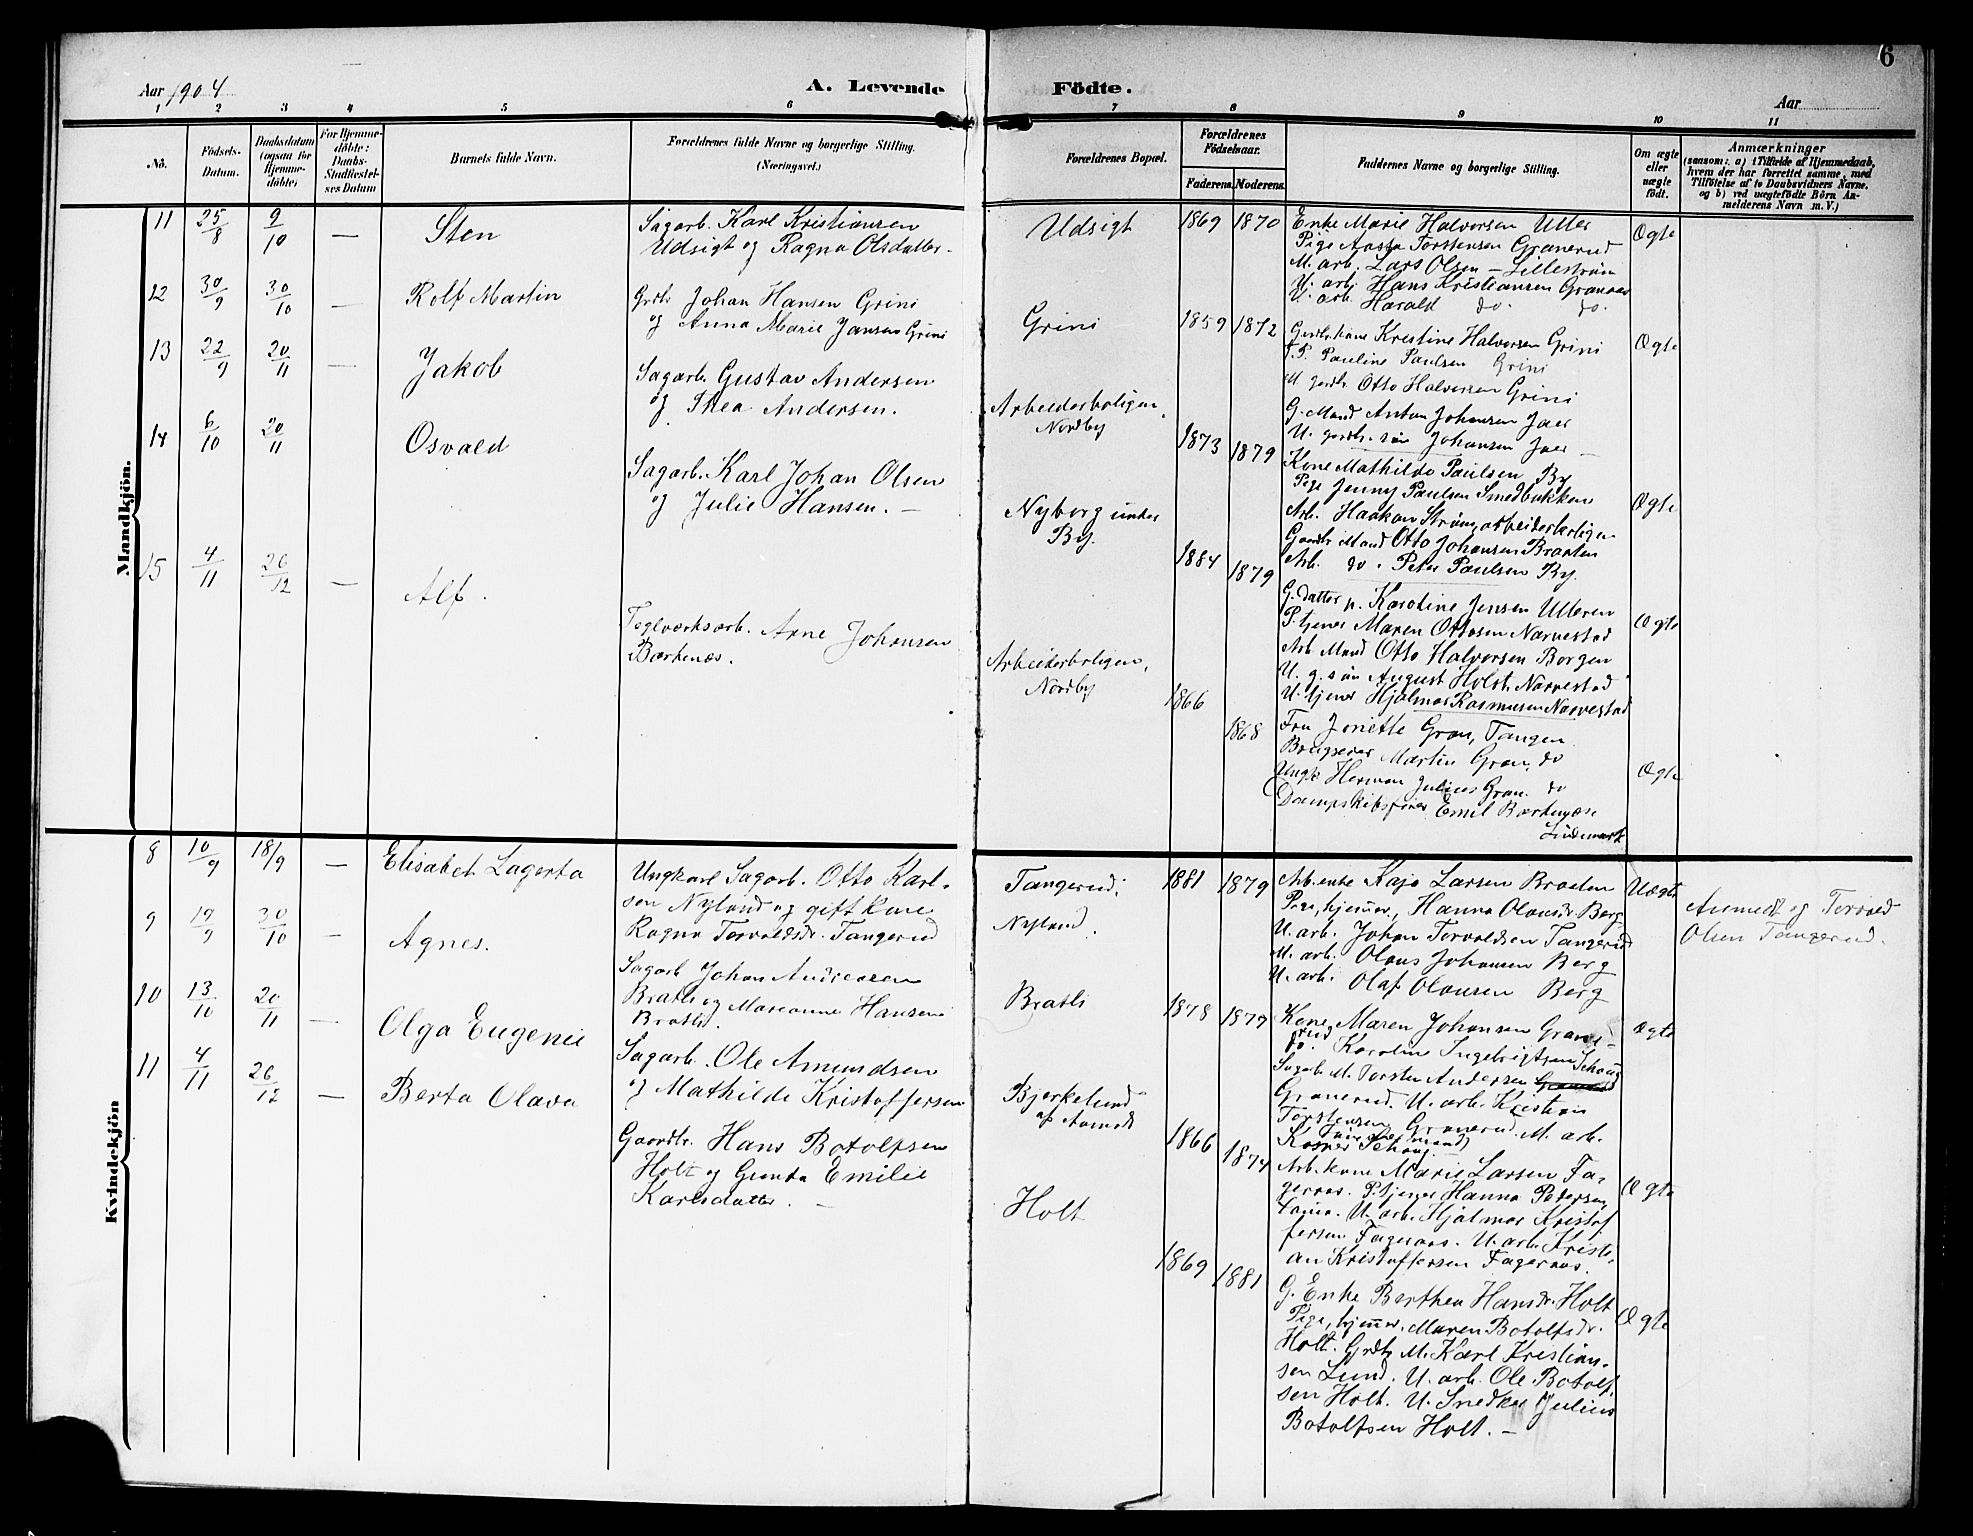 6
Aar 1904
A. Levende
Födte.
Aar
1 2 3 4 5 6 7 8 9 10 11
No.
Födsels-
Datum.
Daabsdatum
(ogsaa for
Hjemme-
döbte)
For Hjemme-
döbte:
Daabs-
Stadfæstel-
ses Datum
Barnets fulde Navn.
Forældrenes fulde Navne og borgerlige Stilling.
(Næringsvei.)
Forældrenes Bopæl.
Forældrenes
Födselsaar.
Faderens. Moderens.
Faddernes Navne og borgerlige Stilling.
Om ægte
eller
uægte
födt.
Anmærkninger
(saasom: a) i Tilfælde af Hjemmedaab,
hvem der har forrettet samme, med
Tilföielse af to Daabsvidners Navne,
og b) ved uægtefödte Börn An-
melderens Navn m. V.)
Mandkjön.
11 25/8 9/10 — Sten
Sagarb. Karl Kristiansen
Udsigt og Ragna Olsdatter.
Udsigt 1869 1870
Enke Marie Halvorsen Utter
Pige Aasta Torstensen Granerud
M. arb. Lars Olsen — Lillestrøm
U. arb. Hans Kristiansen Granaas
U. arb. Harald do. do.
Ægte
12 30/9 30/10 — Rolf Martin
Grdbr. Johan Hansen Grini
og Anna Marie Jansen Grini
Grini 1859 1872
Gaardbr. kone Kristine Halvorsen Grini
T. P. Pauline Paulsen Grini
M. gardbr. Otto Halvorsen Grini
G. Mand Anton Johansen Jaer
U. gardbr. søn Johansen Jaer —
Ægte
13 22/9 20/11 — Jakob
Sagarb. Gustav Andersen
og Thea Andersen.
Arbeiderboligen,
Nordby
1873 1879
Kone Mathilde Paulsen By
Pige Jenny Paulsen Smedbakken
Arb. Haakon Strøm, arbeiderboligen
Gaardbr Mand Otto Johansen Braaten
Arb. do. Peter Paulsen By.
Ægte
14 6/10 20/11 Osvald
Sagarb. Karl Johan Olsen
og Julie Hansen. —
Nyborg under
By.
1884 1879
G. datter p. Karoline Jensen Ulleren
P. tjener Maren Ottosen Narvestad
Arb. Mand Otto Halvorsen Borgen
U. g. søn August Holst, Narvestad
U. tjener Hjalmar Rasmussen Narvestad
Ægte
15 4/11 26/12 — Alf.
Teglværksarb. Arne Johansen
Bærkenæs.
Arbeiderboligen,
Nordby
1866 1868
Fru Jonette Gran, Tangen
Brugseier Martin Gran, do
Ungk. Herman Julius Gran. do
Dampskibsfører Emil Bærkenæs
Ægte
Kvindekjön
8 10/9 18/9 — Elisabet Lagerta
Ungkarl Sagarb. Otto Karl-
sen Nyland og gift kone
Ragna Torvaldsdr. Tangerud
Tangerud.
Nyland.
1881 1879
Arb. enke Kaja Larsen Braaten
Pige, hjemmev., Hanna Olausdr. Berg
U. arb. Johan Torvaldsen Tangerud
M. arb. Olaus Johansen Berg
U. arb. Olaf Olausen Berg
Uægte
Anmeldt og Torvald
Olsen Tangerud.
9 19/9 30/10 — Agnes.
Sagarb Johan Andreasen
Bratli og Marianne Hansen
Bratli.
Bratli 1878 1877
Kone Maren Johansen Grane-
rud
do. Karoline Ingebrigtsen Schaug
Sagarb. M. Torsten Andersen
Granerud. U. arb. Kristian
Torstensen Granerud. M. arb.
Kasper Schaug
Ægte
10 13/10 20/11 — Olga Eugenie
Sagarb. Ole Amundsen
og Mathilde Kristoffersen
Bjerkelund
af Aamodt
1866 1874
Arb. kone Marie Larsen Fa-
geraas. P. tjener Hanna Pedersen
U. arb. Hjalmar Kristof-
fersen Fageraas. U. arb. Kristi-
an Kristoffersen Fageraas.
Ægte
11 4/11 26/12 — Berta Olava
Gaardbr. Hans Botolfsen
Holt og Gunda Emilie
Karlsdatter. —
Holt 1869 1881
G. Enke Berthea Hansdr. Holt
Pige, hjemmev. Maren Botolfsdr.
Holt. Grdbr. M. Karl Kristian-
sen Lund. U. arb. Ole Botolf-
sen Holt. U. Snedker Julius
Botolfsen Holt. —
Ægte